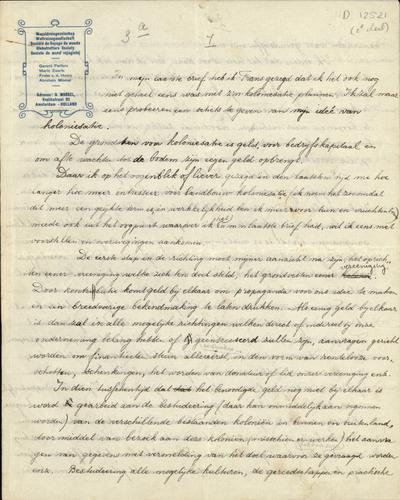 D 12521
(2e deel)
3 a
I
Wagabiridagenootschap
Weltreisegesellschaft
Société du Voyage du monde
Globetrotters Society
Gerard Perfors
Adres: B. MOSSEL,
Amsterdam - HOLLAND
In mijn laatste brief heb ik Frans gezegd dat ik het ook nog
niet geheel eens was met z'n kolonisatie plannen. Ik zal maar
eens probeeren een schets te geven van mijn idee van
kolonisatie.
De grondsten voor kolonisatie is geld, voor bedrijfskapitaal en
om af te wachten dat de bodem zijn eigen geld opbrengt.
Daar ik op het oogenblik of liever gezegd in den laatsten tijd me hoe
langer hoe meer interesseer voor landbouw kolonisatie, ik noem het zoo omdat
dit meer een geijkte term is, in werkelijkheid ben ik meer voor tuin en
mede ook uit het oogpunt waarover ik in m'n laatste brief had, wil ik eens met
voorstellen en overwegingen aankomen.
De eerste stap in de richting moet mijns aanzicht na zijn, het oprich-
ten eener vereeniging welke zich ten doel stelt, het grondvesten eener "vereeniging"
Door kontributie komt geld bij elkaar om propaganda voor ons idee te maken
en een breedvoerige bekendmaking te laten drukken. Als eenig geld bij elkaar
is dan zal in alle mogelijke richtingen welken direct of indirect bij onze
onderneming belang hebben of geïnteresseerd zullen zijn, aanvragen gericht
worden om financieelen steun allereerst, in den vorm van rentelooze voor-
schotten, schenkingen, het worden van donateur of lid onzer vereeniging enz.
In dien tusschentijd dat het benoodigde geld nog niet bij elkaar is
word gearbeid aan de bestudeering (daar kan onmiddelijk aan begonnen
worden) van de verschillende bestaanden koloniën in binnen en buitenland,
door middel van bezoek aan deze koloniën, (misschien er werken) het aanvra-
gen van gegevens met vermelding van het doel waarvoor ze gevraagd worden
enz. Bestudeering alle mogelijke kulturen, de gereedschappen en practische